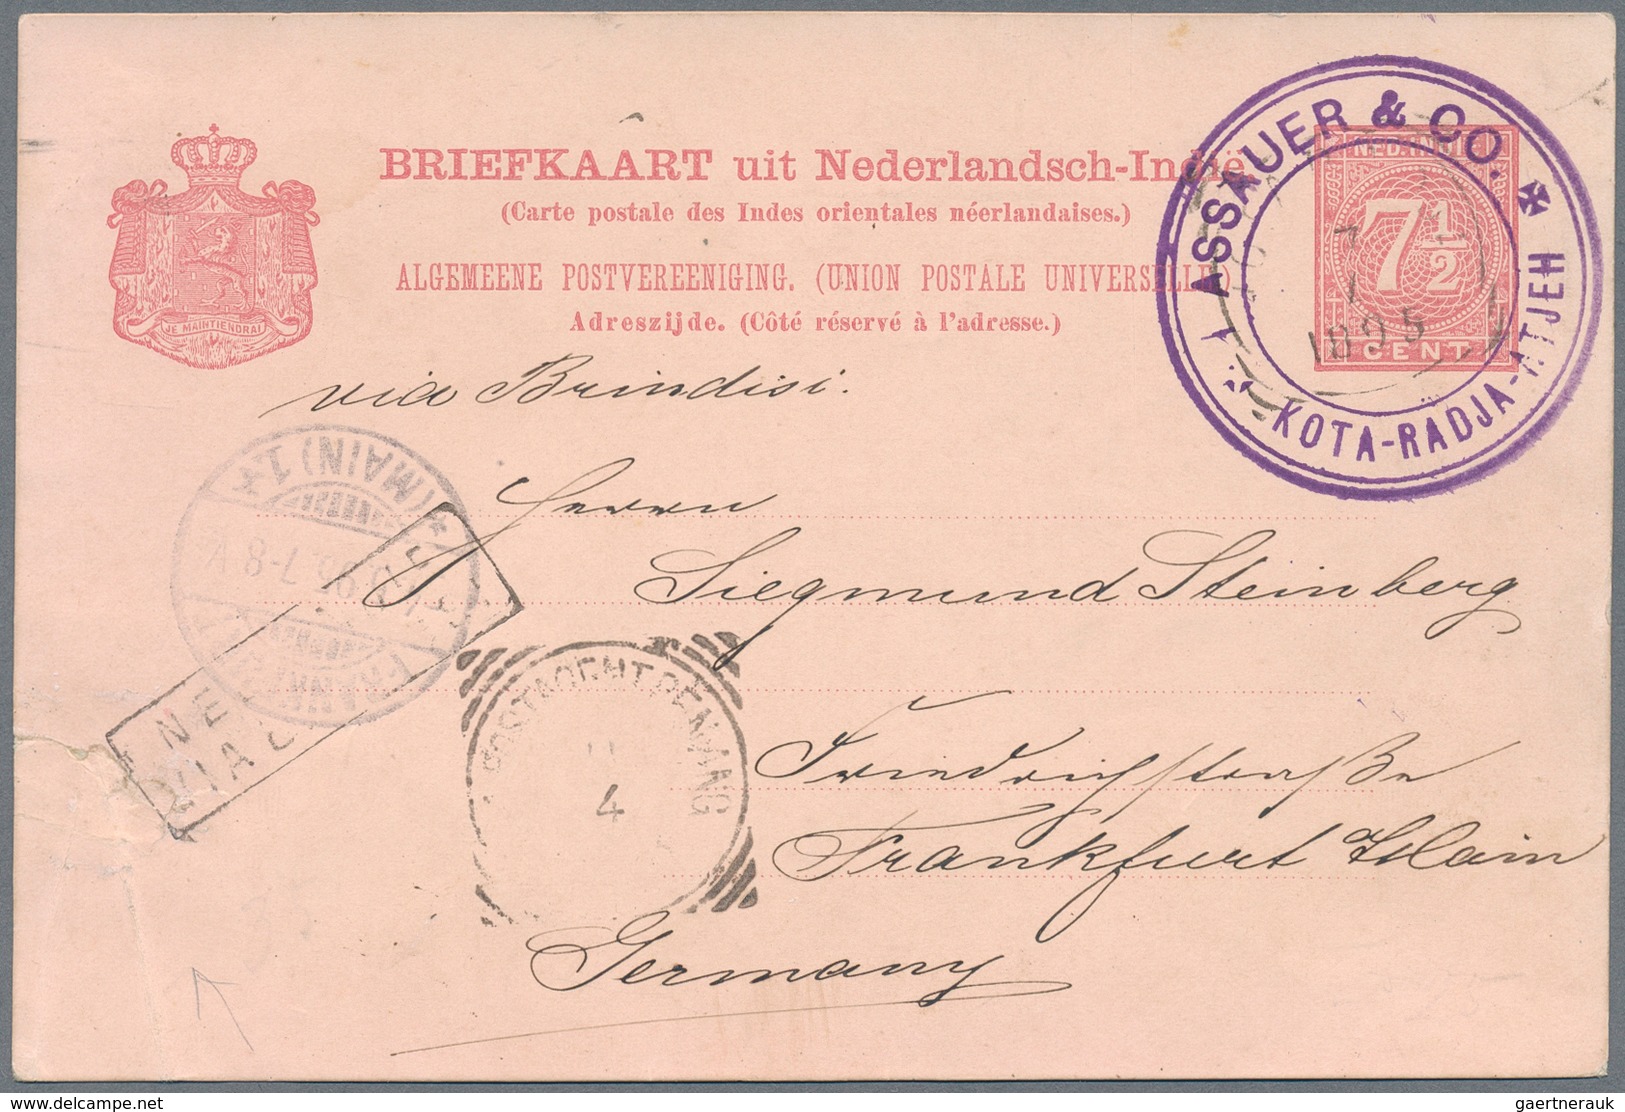 BRIEFKAART uit Nederlandsch-Indië
(Carte postale des Indes orientales néerlandaises.)
ALGEMEENE POSTVEREENIGING. (UNION POSTALE UNIVERSELLE)
Adreszijde. (Côté réservé à l'adresse.)
JE MAINTIENDRAI
NED. INDIE
7½
CENT
ASSAUER & CO.
KOTA-RADJA-ATJEH
1895
via Brindisi.
(MAIN) 1
7-8 V
Herrn
Siegmund Steinberg
POSTAGENT PENANG
4
VIA
Friedrichstraße
Frankfurt Main
Germany
delcampe.net
gaertnerauk